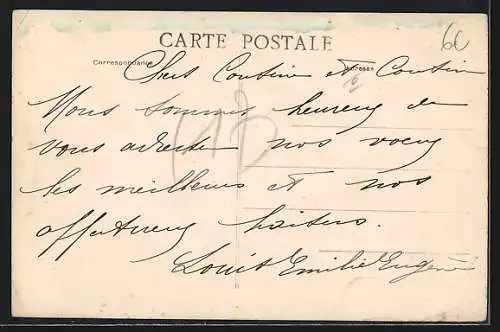 CARTE POSTALE
60
Correspondance
Adresse
Chers Cousine et Cousin
Nous sommes heureux de
vous adresser nos voeux
les meilleurs et nos
affectueux baisers.
Louis Emilie Eugène